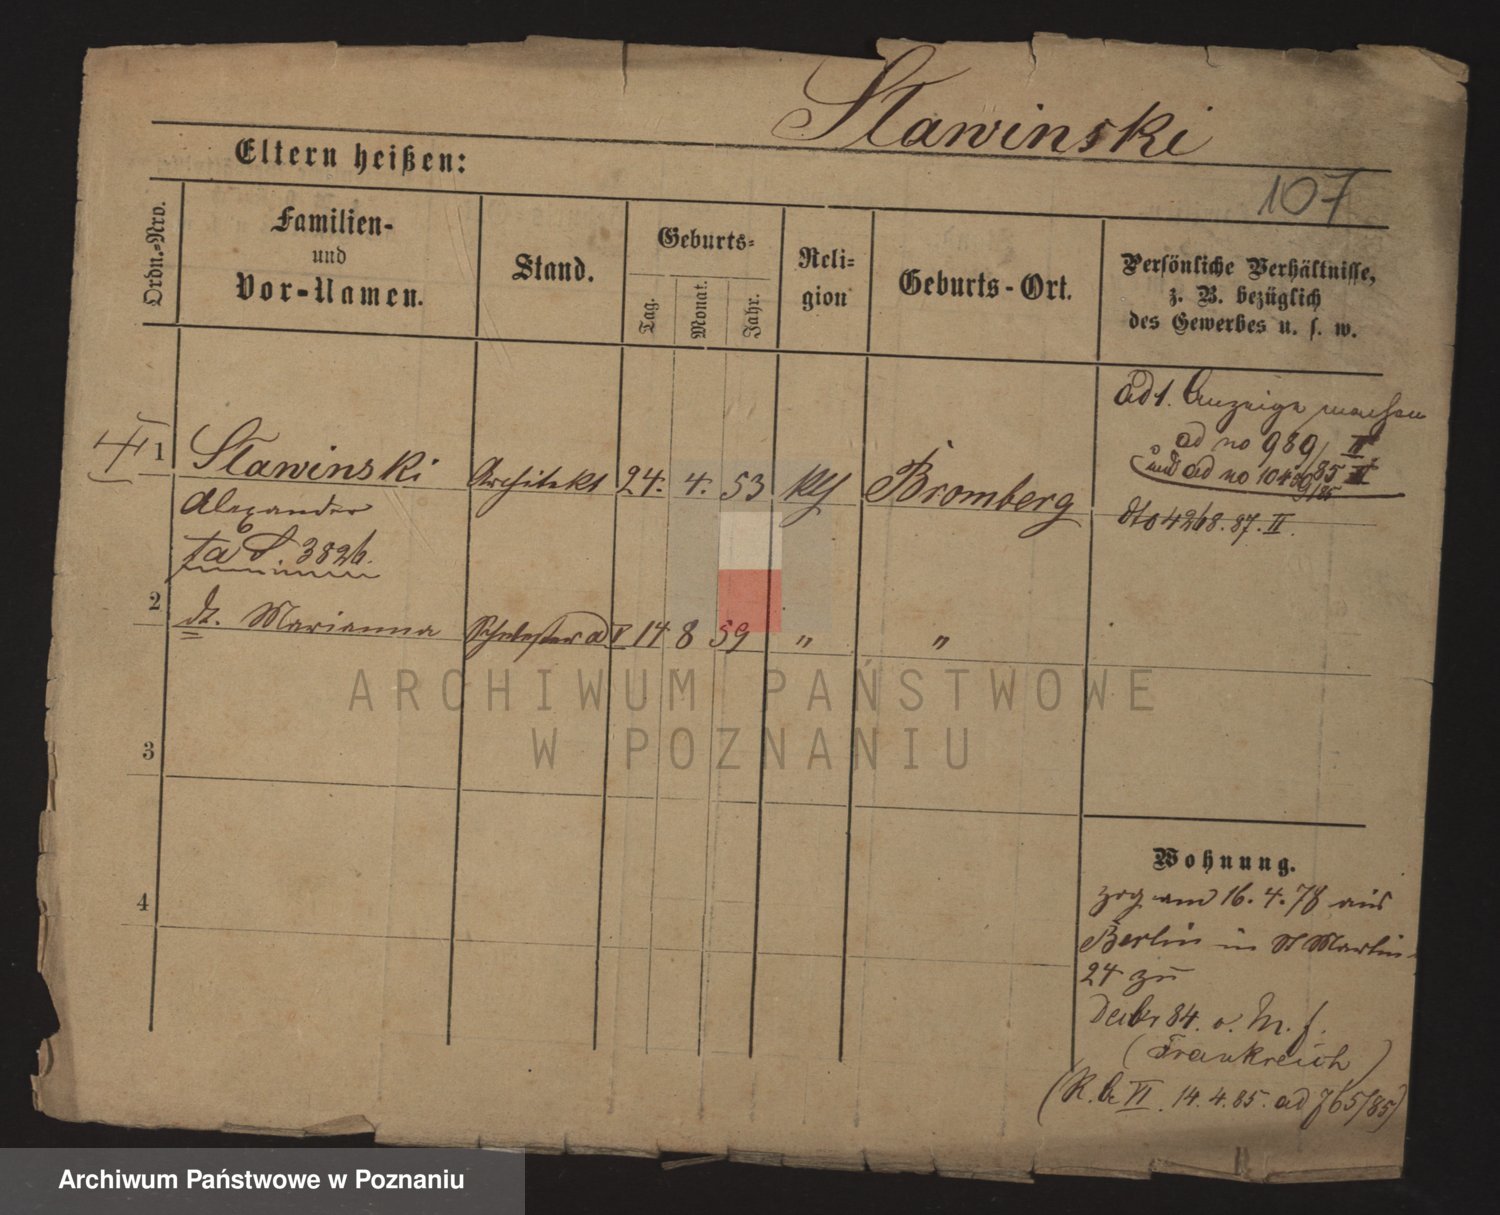 Slawinski
107
Eltern heißen:
Ordn.-Nro.
Familien-
und
Vor-Namen.
Stand.
Geburts-
Tag.
Monat.
Jahr.
Reli-
gion
Geburts-Ort.
Persönliche Verhältnisse,
z. B. bezüglich
des Gewerbes u. s. w.
1 Slawinski Architekt 24. 4. 53 Bromberg
Alexander
3826.
ad 1. Anzeige machen
ad no 989/85 II
und ad no
dto 4268. 87. II.
2 dt. Marianna Schwester ad 1 14 8 59 " "
3
4
Wohnung.
zog am 16. 4. 78 aus
Berlin in St Martin
24 zu
Decbr 84. o. M. f.
(Frankreich)
(R. b. VI. 14. 4. 85. ad 765/85)
ARCHIWUM PAŃSTWOWE
W POZNANIU
Archiwum Państwowe w Poznaniu